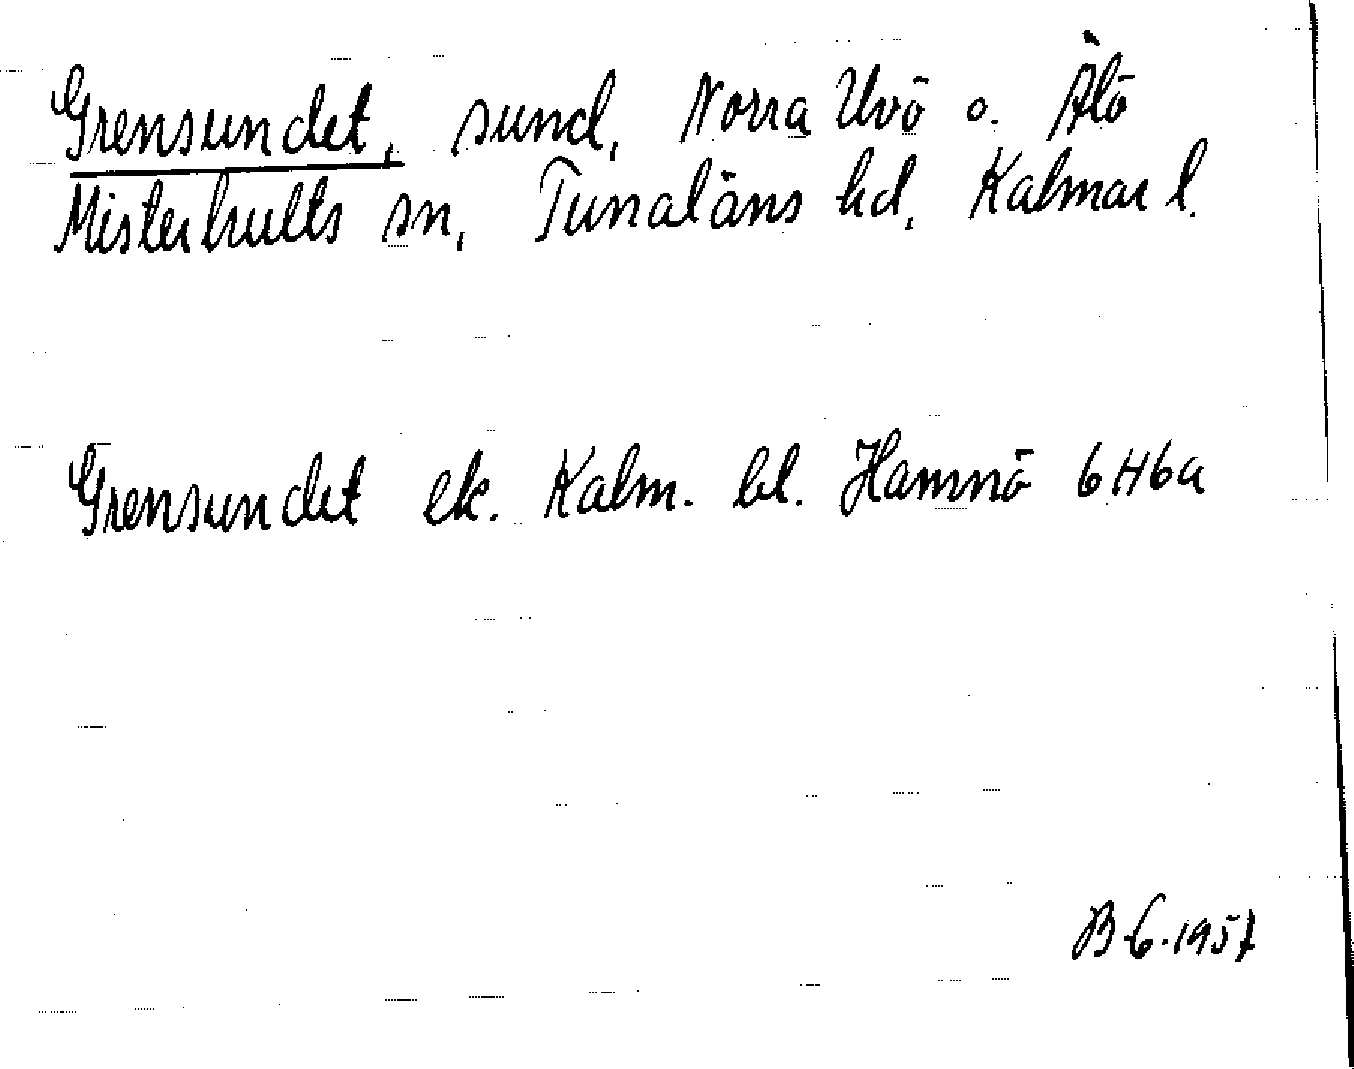 Grensundet, sund, Norra Uvö o. Älö
Misterhults sn, Tunaläns hd, Kalmar l.
Grensundet ek. Kalm. bl. Hamnö 6H6a
B G. 1957